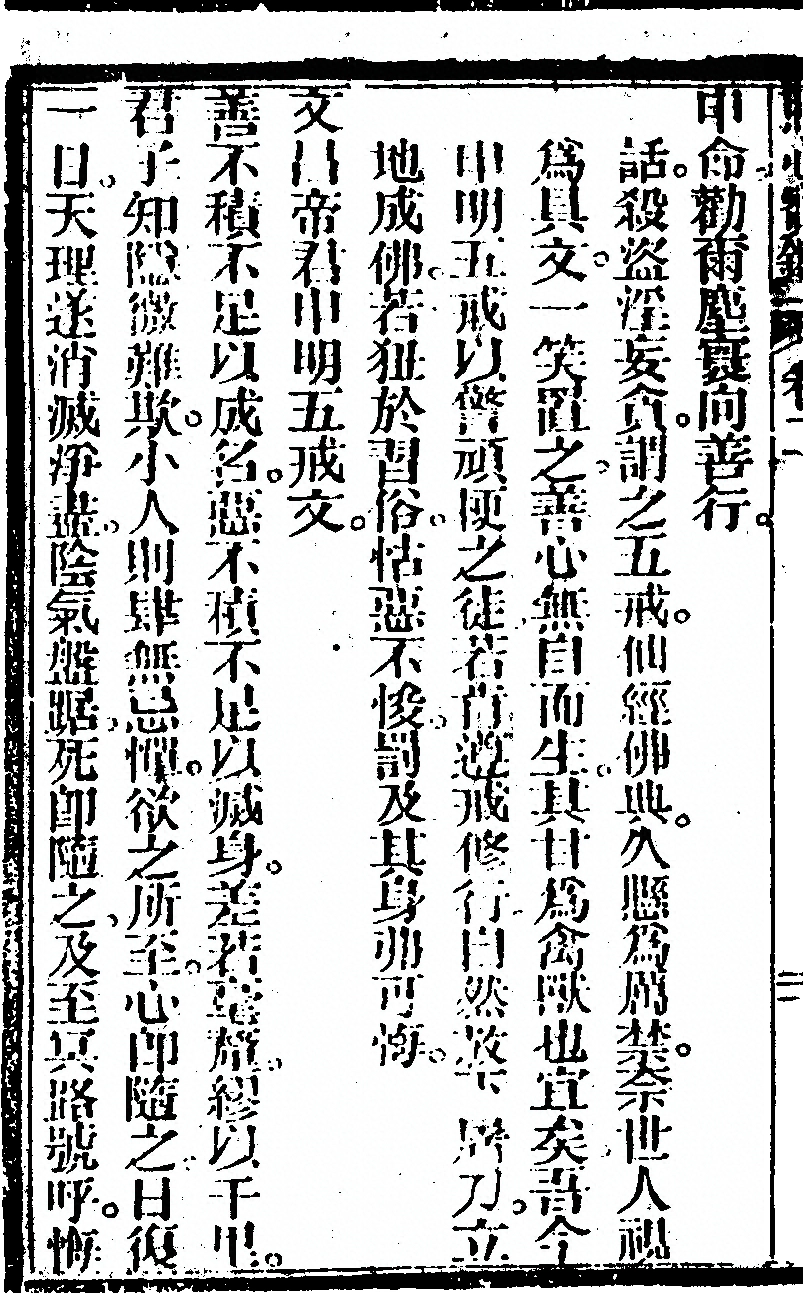 申命勸爾塵寰向善行。
話。殺盜淫妄貪。謂之五戒。仙經佛典。久懸為厲禁。奈世人視
為具文。一笑置之。善心無自而生。其甘為禽獸也宜矣。吾今
申明五戒。以警頑梗之徒。若肯遵戒修行。自然放下屠刀。立
地成佛。若狃於習俗。怙惡不悛。罰及其身。弗可悔。
文昌帝君申明五戒文。
善不積不足以成名。惡不積不足以滅身。差若毫釐。繆以千里。
君子知隱微難欺。小人則肆無忌憚。欲之所至。心即隨之。日復
一日。天理遂消滅淨盡。陰氣盤踞。死即隨之。及至冥路號呼。悔